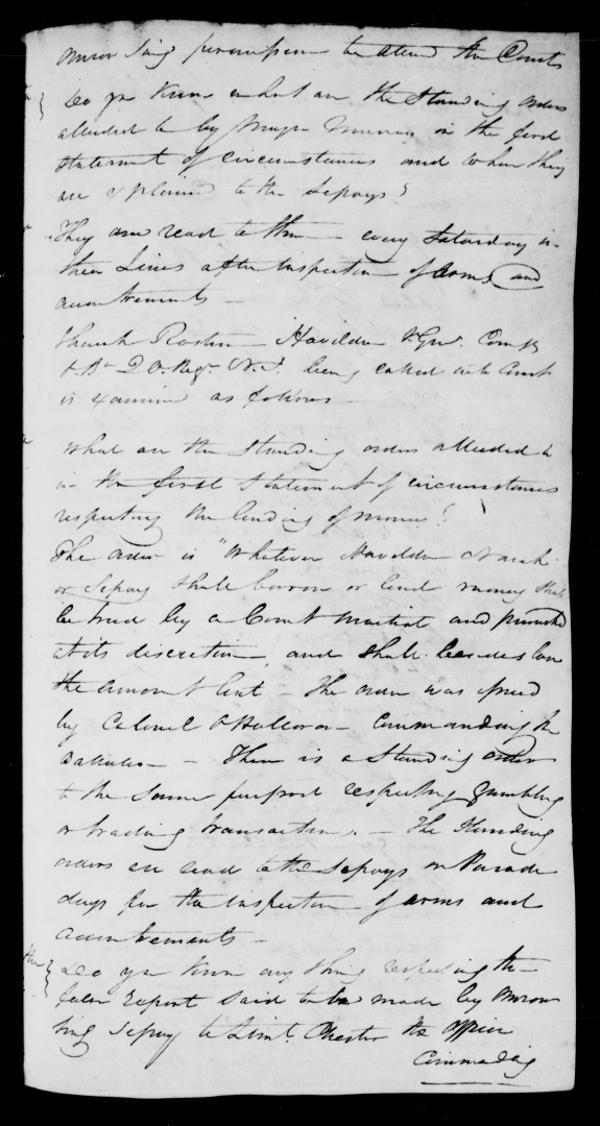 Sing permission to attend the Court
Do you Know what are the Standing orders
alluded to by Major in the first
Statement of circumstances and when they
are explained to the Sepoys?
They are read to them every Saturday in
their Lines after Inspection of arms and
accoutrements —
Havildar Comp.y
Regt. N.I. being called into Court
is examined as follows —
What are the Standing orders alluded to
in the first Statement of circumstances
respecting the lending of money?
The order is "Whatever Havildar Naick
or Sepoy shall borrow or lend money shall
be tried by a Court Martial and punished
at its discretion and shall besides lose
the amount lent — The order was issued
by Colonel O'Halloran Commanding the
Battalion — There is a Standing order
to the same purport respecting gambling
or trading transactions. — The Standing
orders are read to the Sepoys on Parade
days for the inspection of arms and
accoutrements —
Do you Know any thing respecting the
false Report said to be made by
Sing Sepoy to Lieut. Chester the Officer
Commanding